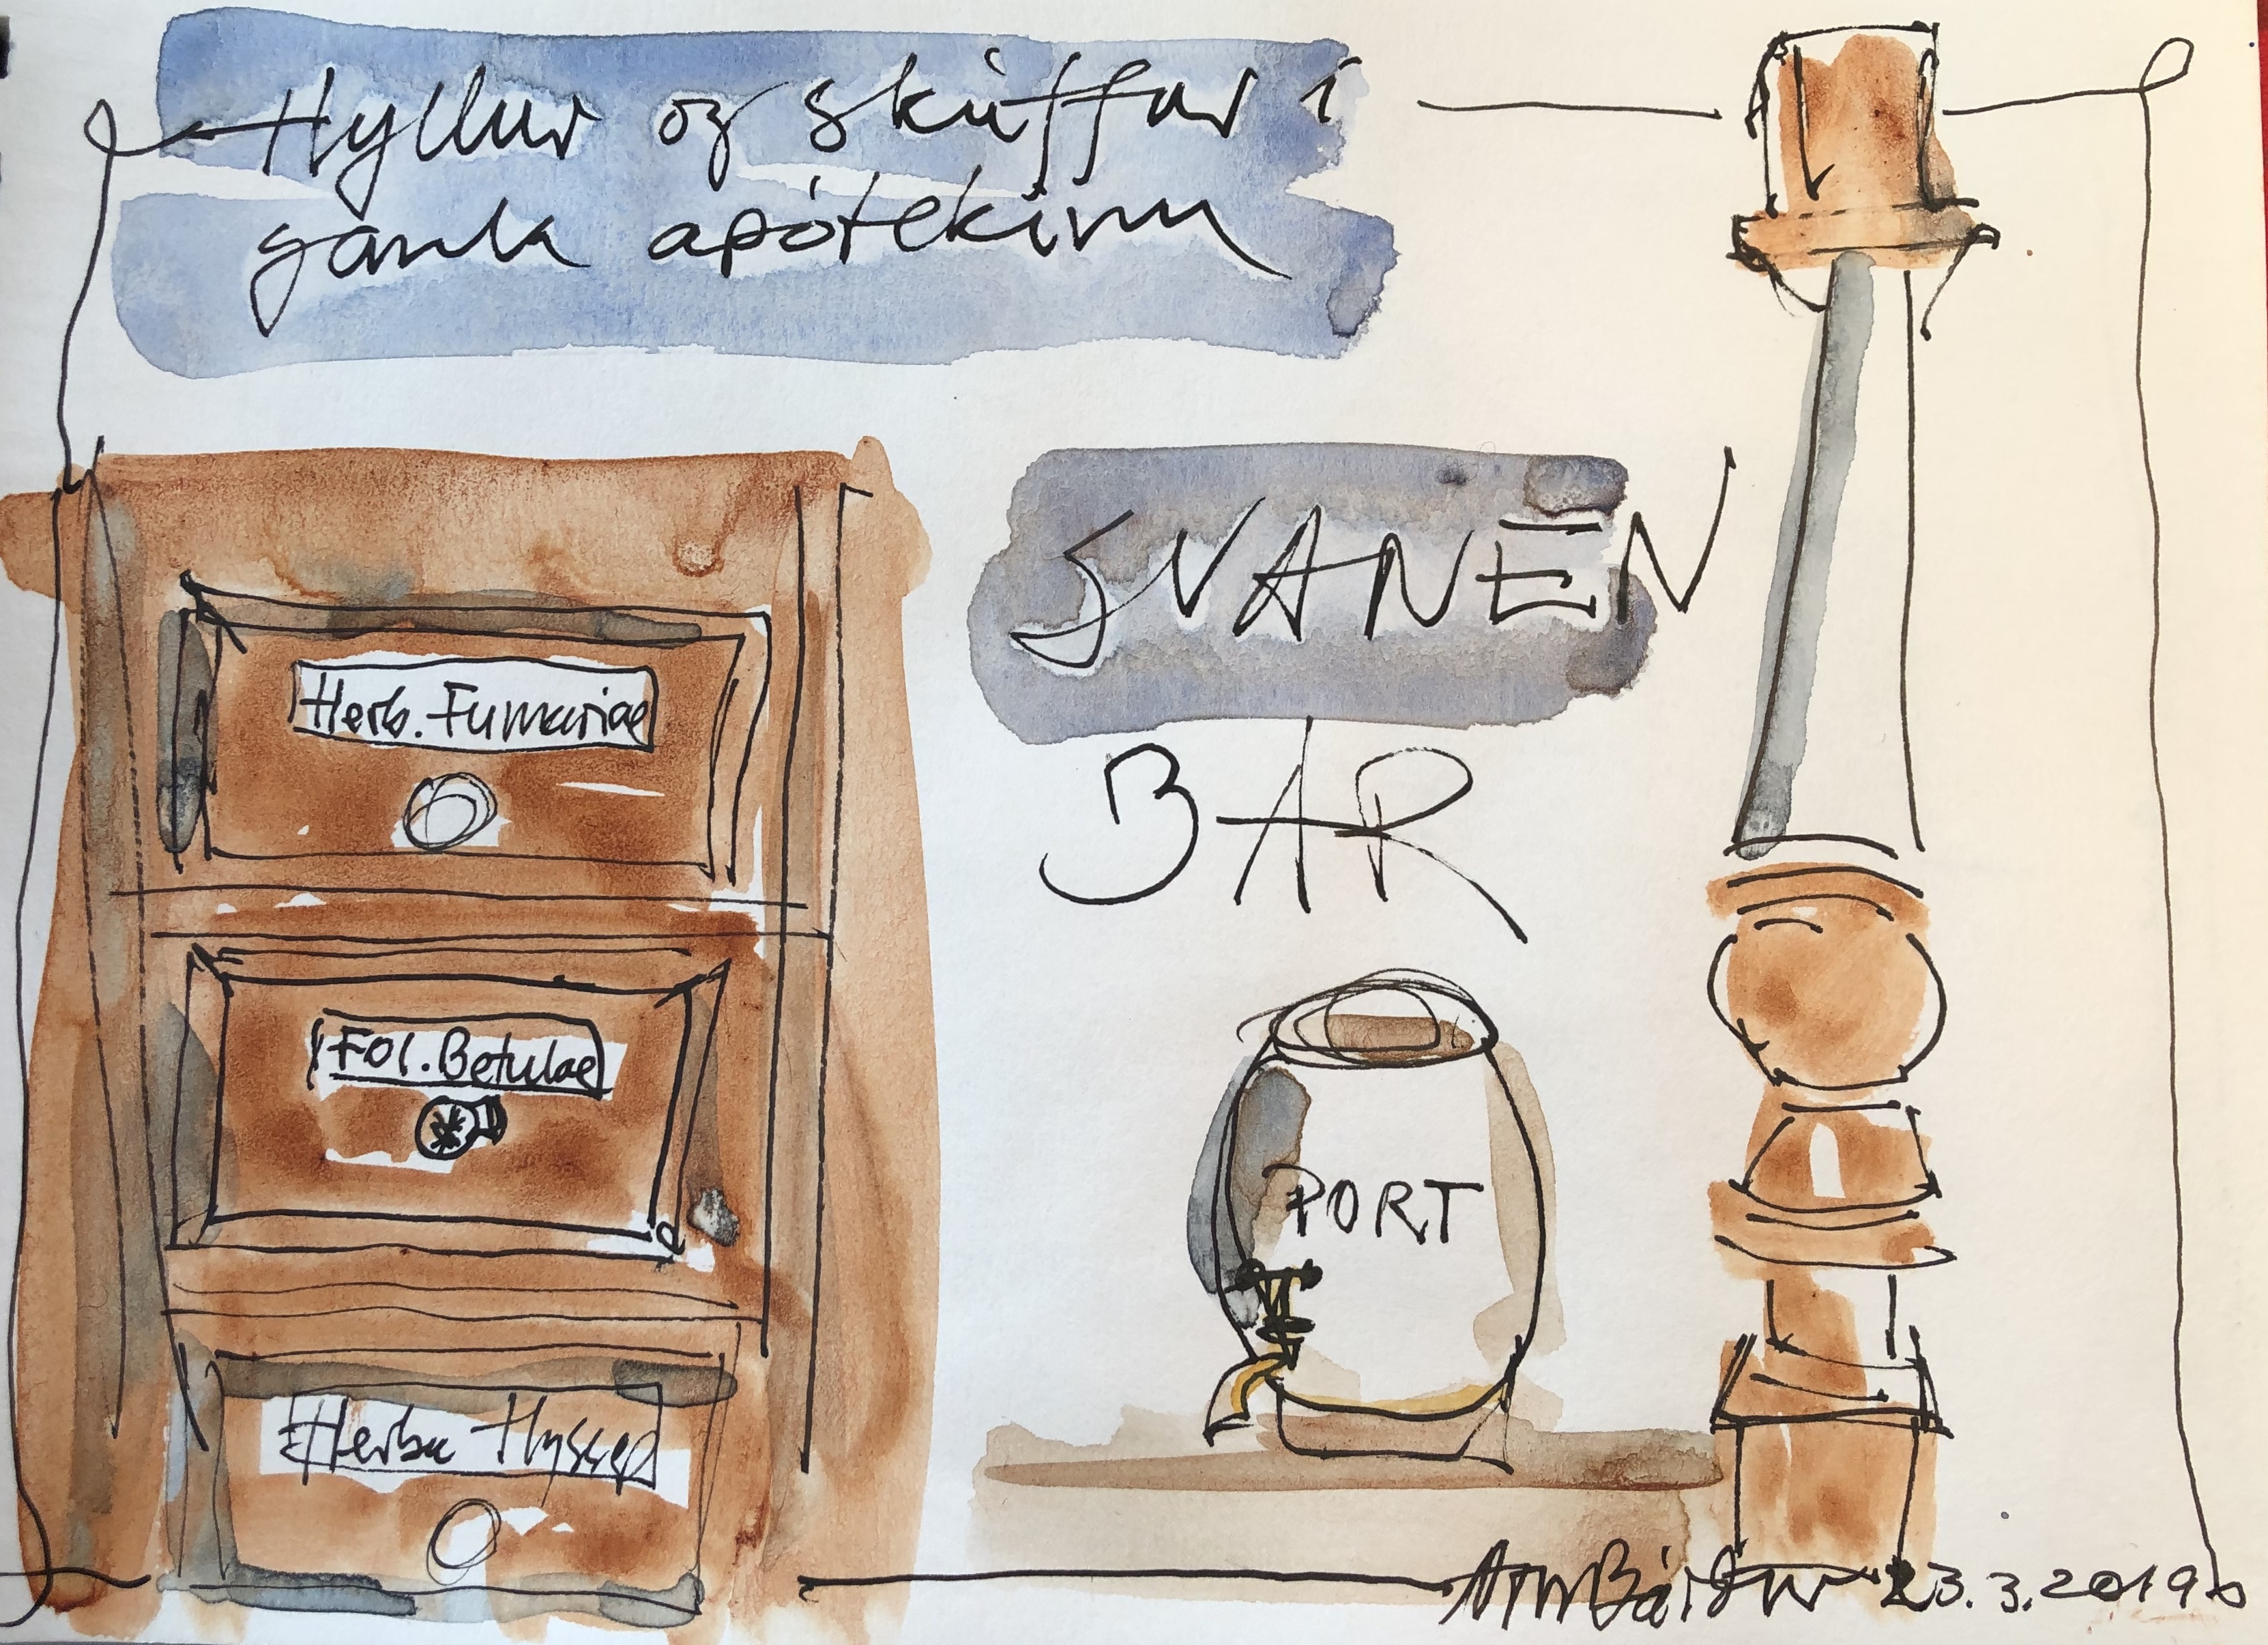 Hyllur og skúffur í
gamla apótekinu
SVANEN
BAR
Herb. Fumariae
Fol. Betulae
Herba Hyssop
PORT
23.3.2019